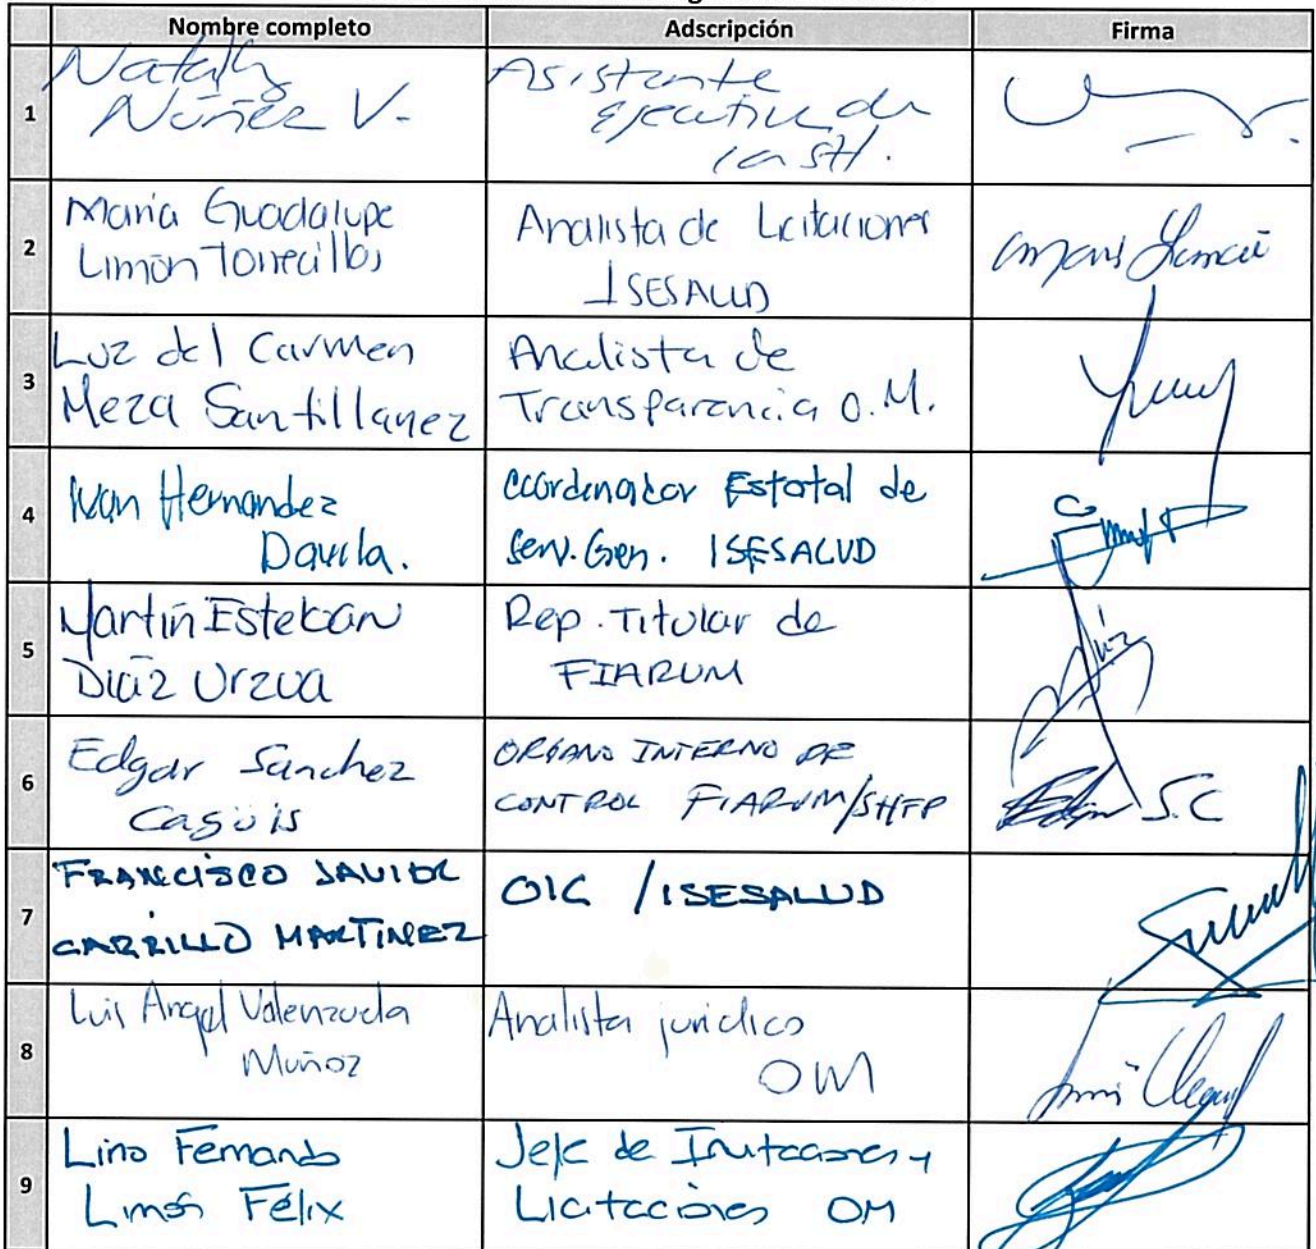 Nombre completo Adscripción Firma
1
Nataly
Núñez V.
Asistente
Ejecutiva de
la SH.
2
Maria Guadalupe
Limón Torrecillas
Analista de Licitaciones
ISESALUD
3
Luz del Carmen
Meza Santillanez
Analista de
Transparencia O.M.
4
Ivan Hernandez
Davila.
Coordenador Estatal de
Serv. Gen. ISESALUD
5
Martín Esteban
Diaz Urzua
Rep. Titular de
FIARUM
6
Edgar Sanchez
ORGANO INTERNO DE
CONTROL FIARUM/SHFP
S.C
7
FRANCISCO JAVIER
CARRILLO MARTINEZ
OIC / ISESALUD
8
Luis Angel Valenzuela
Muñoz
Analista juridico
OM
9
Lino Fernando
Limón Félix
Jefe de Invitaciones y
Licitaciones OM